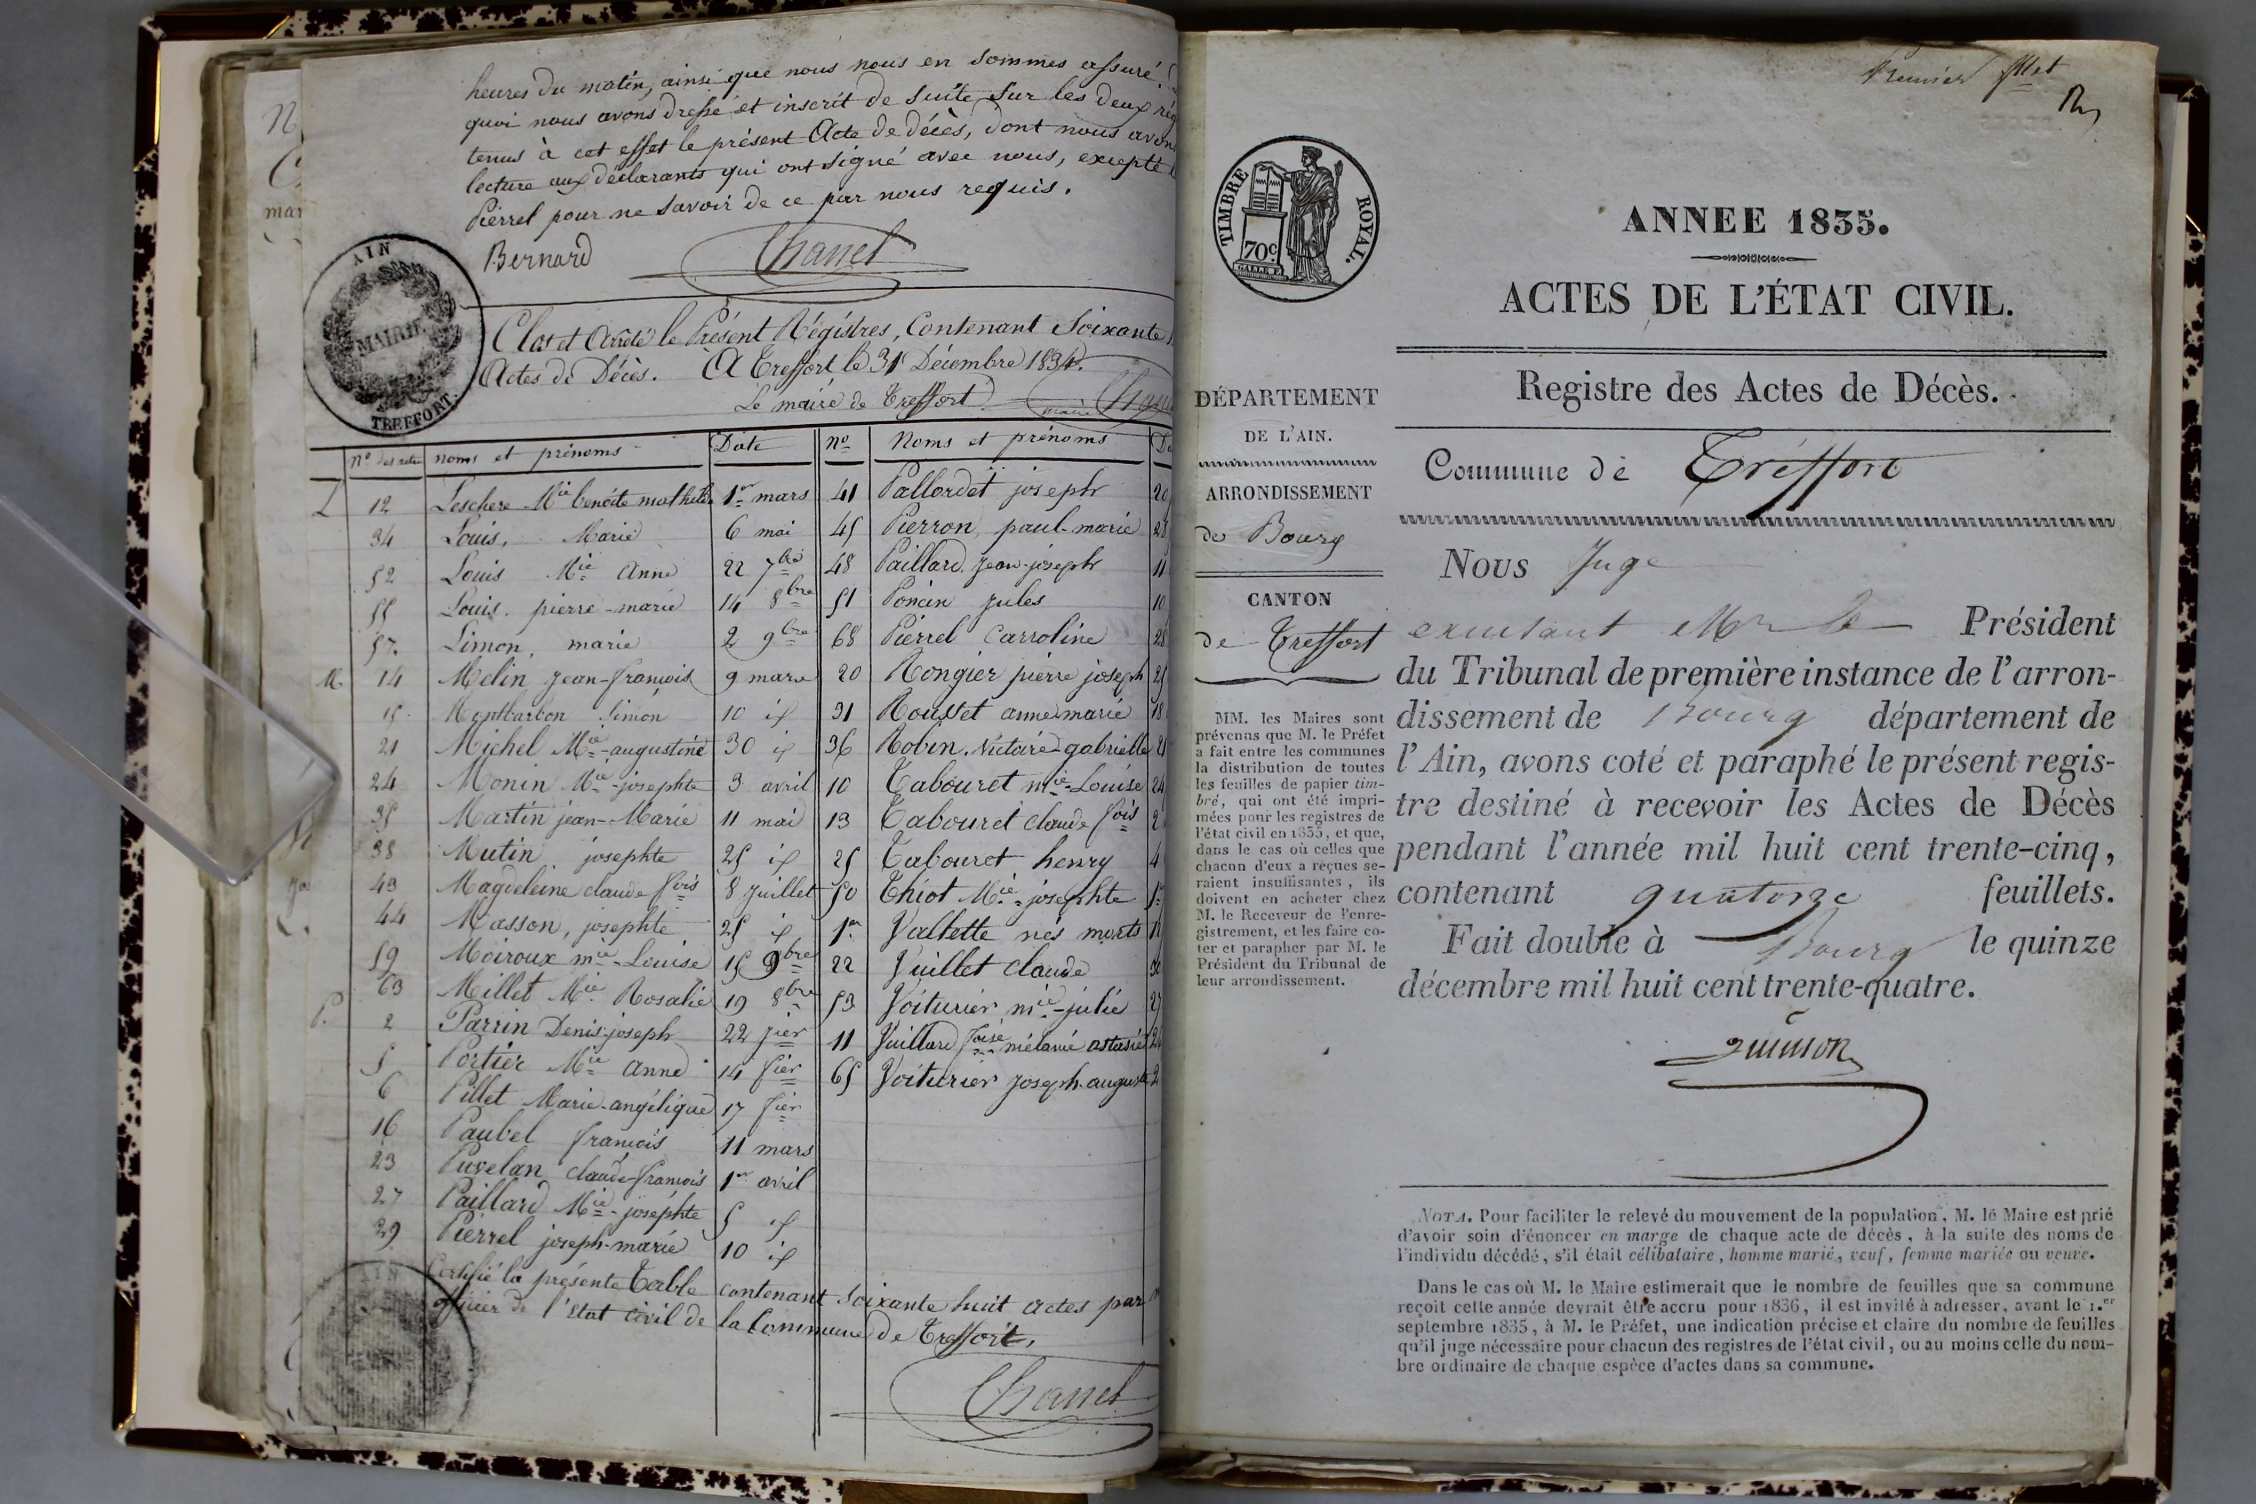 heures du matin, ainsi que nous nous en sommes assuré.
quoi nous avons dressé et inscrit de suite sur les deux rég
tenus à cet effet le présent Acte de décès, dont nous avons
lecture aux déclarants qui ont signé avec nous, excepté
Pierrel pour ne savoir de ce par nous requis.
Bernard Chanel
AIN
MAIRIE
TREFFORT.
Clos et Arrêté le Présent Régistres, Contenant Soixante
Actes de Décès. A Treffort le 31 Décembre 1834.
Le maire de Treffort
Nº des actes noms et prénoms Date Nº Noms et prénoms Da
L 12 Leschere Mie benoite mathilde 1er mars 41 Pallordet joseph 20
34 Louis, Marie 6 mai 45 Pierron, paul-marie 28
52 Louis Mie Anne 22 7bre 48 Paillard Jean-joseph 11
55 Louis. pierre-marie 14 8bre 51 Poncin Jules 10
57. Limon, marie 2 9bre 68 Pierrel Carroline 28
M 14 Melin Jean-françois 9 mars 20 Rongier pierre joseph 25
15 Montbarbon Simon 10 id 31 Roustet anne marie 18
21 Michel Mie-augustine 30 id 36 Robin. Victoire-gabrielle 21
24 Monin Mie-josephte 3 avril 10 Tabouret mie-Louise 24
35 Martin jean-Marie 11 mai 13 Tabouret claude fois 2
38 Mutin josephte 25 id 25 Tabouret henry 4
43 Magdeleine claude fois 8 Juillet 50 Thiot Mie-josephte
44 Masson, josephte 25 id 1er Vallette nés morts
59 Moiroux mie-Louise 15 9bre 22 Vuillet claude
63 Millet Mie Rosalie 19 8bre 53 Voiturier mie-julie 27
P. 2 Parrin Denis-joseph 22 Jier 11 Vuillard foise mélanie astasie
5 Portier Mie Anne 14 fier 65 Voiturier Joseph-auguste 2
6 Pillet Marie-angélique 17 fier
16 Paubel françois 11 mars
23 Puvelan claude-françois 1er avril
27 Paillard Mie-joséphte 5 id
29 Pierrel joseph-marie 10 id
Certifié la présente Table contenant Soixante huit actes par
officier de l'Etat civil de la Commune de Treffort,
Chanel
AIN
Premier fllet
TIMBRE ROYAL.
70c.
ANNEE 1835.
ACTES DE L'ÉTAT CIVIL.
Registre des Actes de Décès.
Commune de Tréffort
DÉPARTEMENT
DE L'AIN.
ARRONDISSEMENT
de Bourg
CANTON
de Treffort
MM. les Maires sont
prévenus que M. le Préfet
a fait entre les communes
la distribution de toutes
les feuilles de papier tim-
bré, qui ont été impri-
mées pour les registres de
l'état civil en 1835, et que,
dans le cas où celles que
chacun d'eux a reçues se-
raient insuffisantes, ils
doivent en acheter chez
M. le Receveur de l'enre-
gistrement, et les faire co-
ter et parapher par M. le
Président du Tribunal de
leur arrondissement.
Nous Juge
excusant Mr le Président
du Tribunal de première instance de l'arron-
dissement de Bourg département de
l'Ain, avons coté et paraphé le présent regis-
tre destiné à recevoir les Actes de Décès
pendant l'année mil huit cent trente-cinq,
contenant quatorze feuillets.
Fait double à Bourg le quinze
décembre mil huit cent trente-quatre.
NOTA. Pour faciliter le relevé du mouvement de la population, M. le Maire est prié
d'avoir soin d'énoncer en marge de chaque acte de décès, à la suite des noms de
l'individu décédé, s'il était célibataire, homme marié, veuf, femme mariée ou veuve.
Dans le cas où M. le Maire estimerait que le nombre de feuilles que sa commune
reçoit cette année devrait être accru pour 1836, il est invité à adresser, avant le 1.er
septembre 1835, à M. le Préfet, une indication précise et claire du nombre de feuilles
qu'il juge nécessaire pour chacun des registres de l'état civil, ou au moins celle du nom-
bre ordinaire de chaque espèce d'actes dans sa commune.